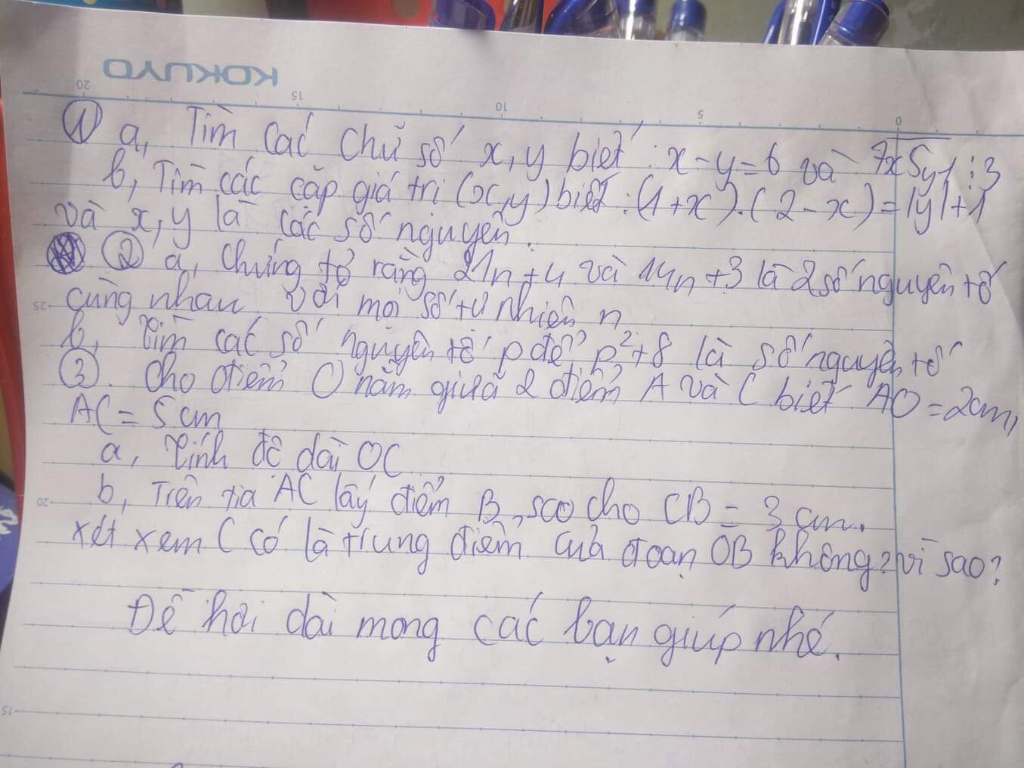 KOKUYO
20 15 10 5 0
① a, Tìm các chữ số x, y biết: x-y=6 và 7x5y1 ⋮ 3
b, Tìm các cặp giá trị (x,y) biết: (1+x).(2-x)=|y|+1
và x, y là các số nguyên.
② a, Chứng tỏ rằng 21n+4 và 14n+3 là 2 số nguyên tố
25 cùng nhau với mọi số tự nhiên n
b, Tìm các số nguyên tố p để p²+8 là số nguyên tố
③. Cho điểm O nằm giữa 2 điểm A và C biết AO=2cm,
AC = 5cm
a, Tính độ dài OC
20 b, Trên tia AC lấy điểm B, sao cho CB = 3 cm.
xét xem C có là trung điểm của đoạn OB không? vì sao?
Đề hơi dài mong các bạn giúp nhé.
15